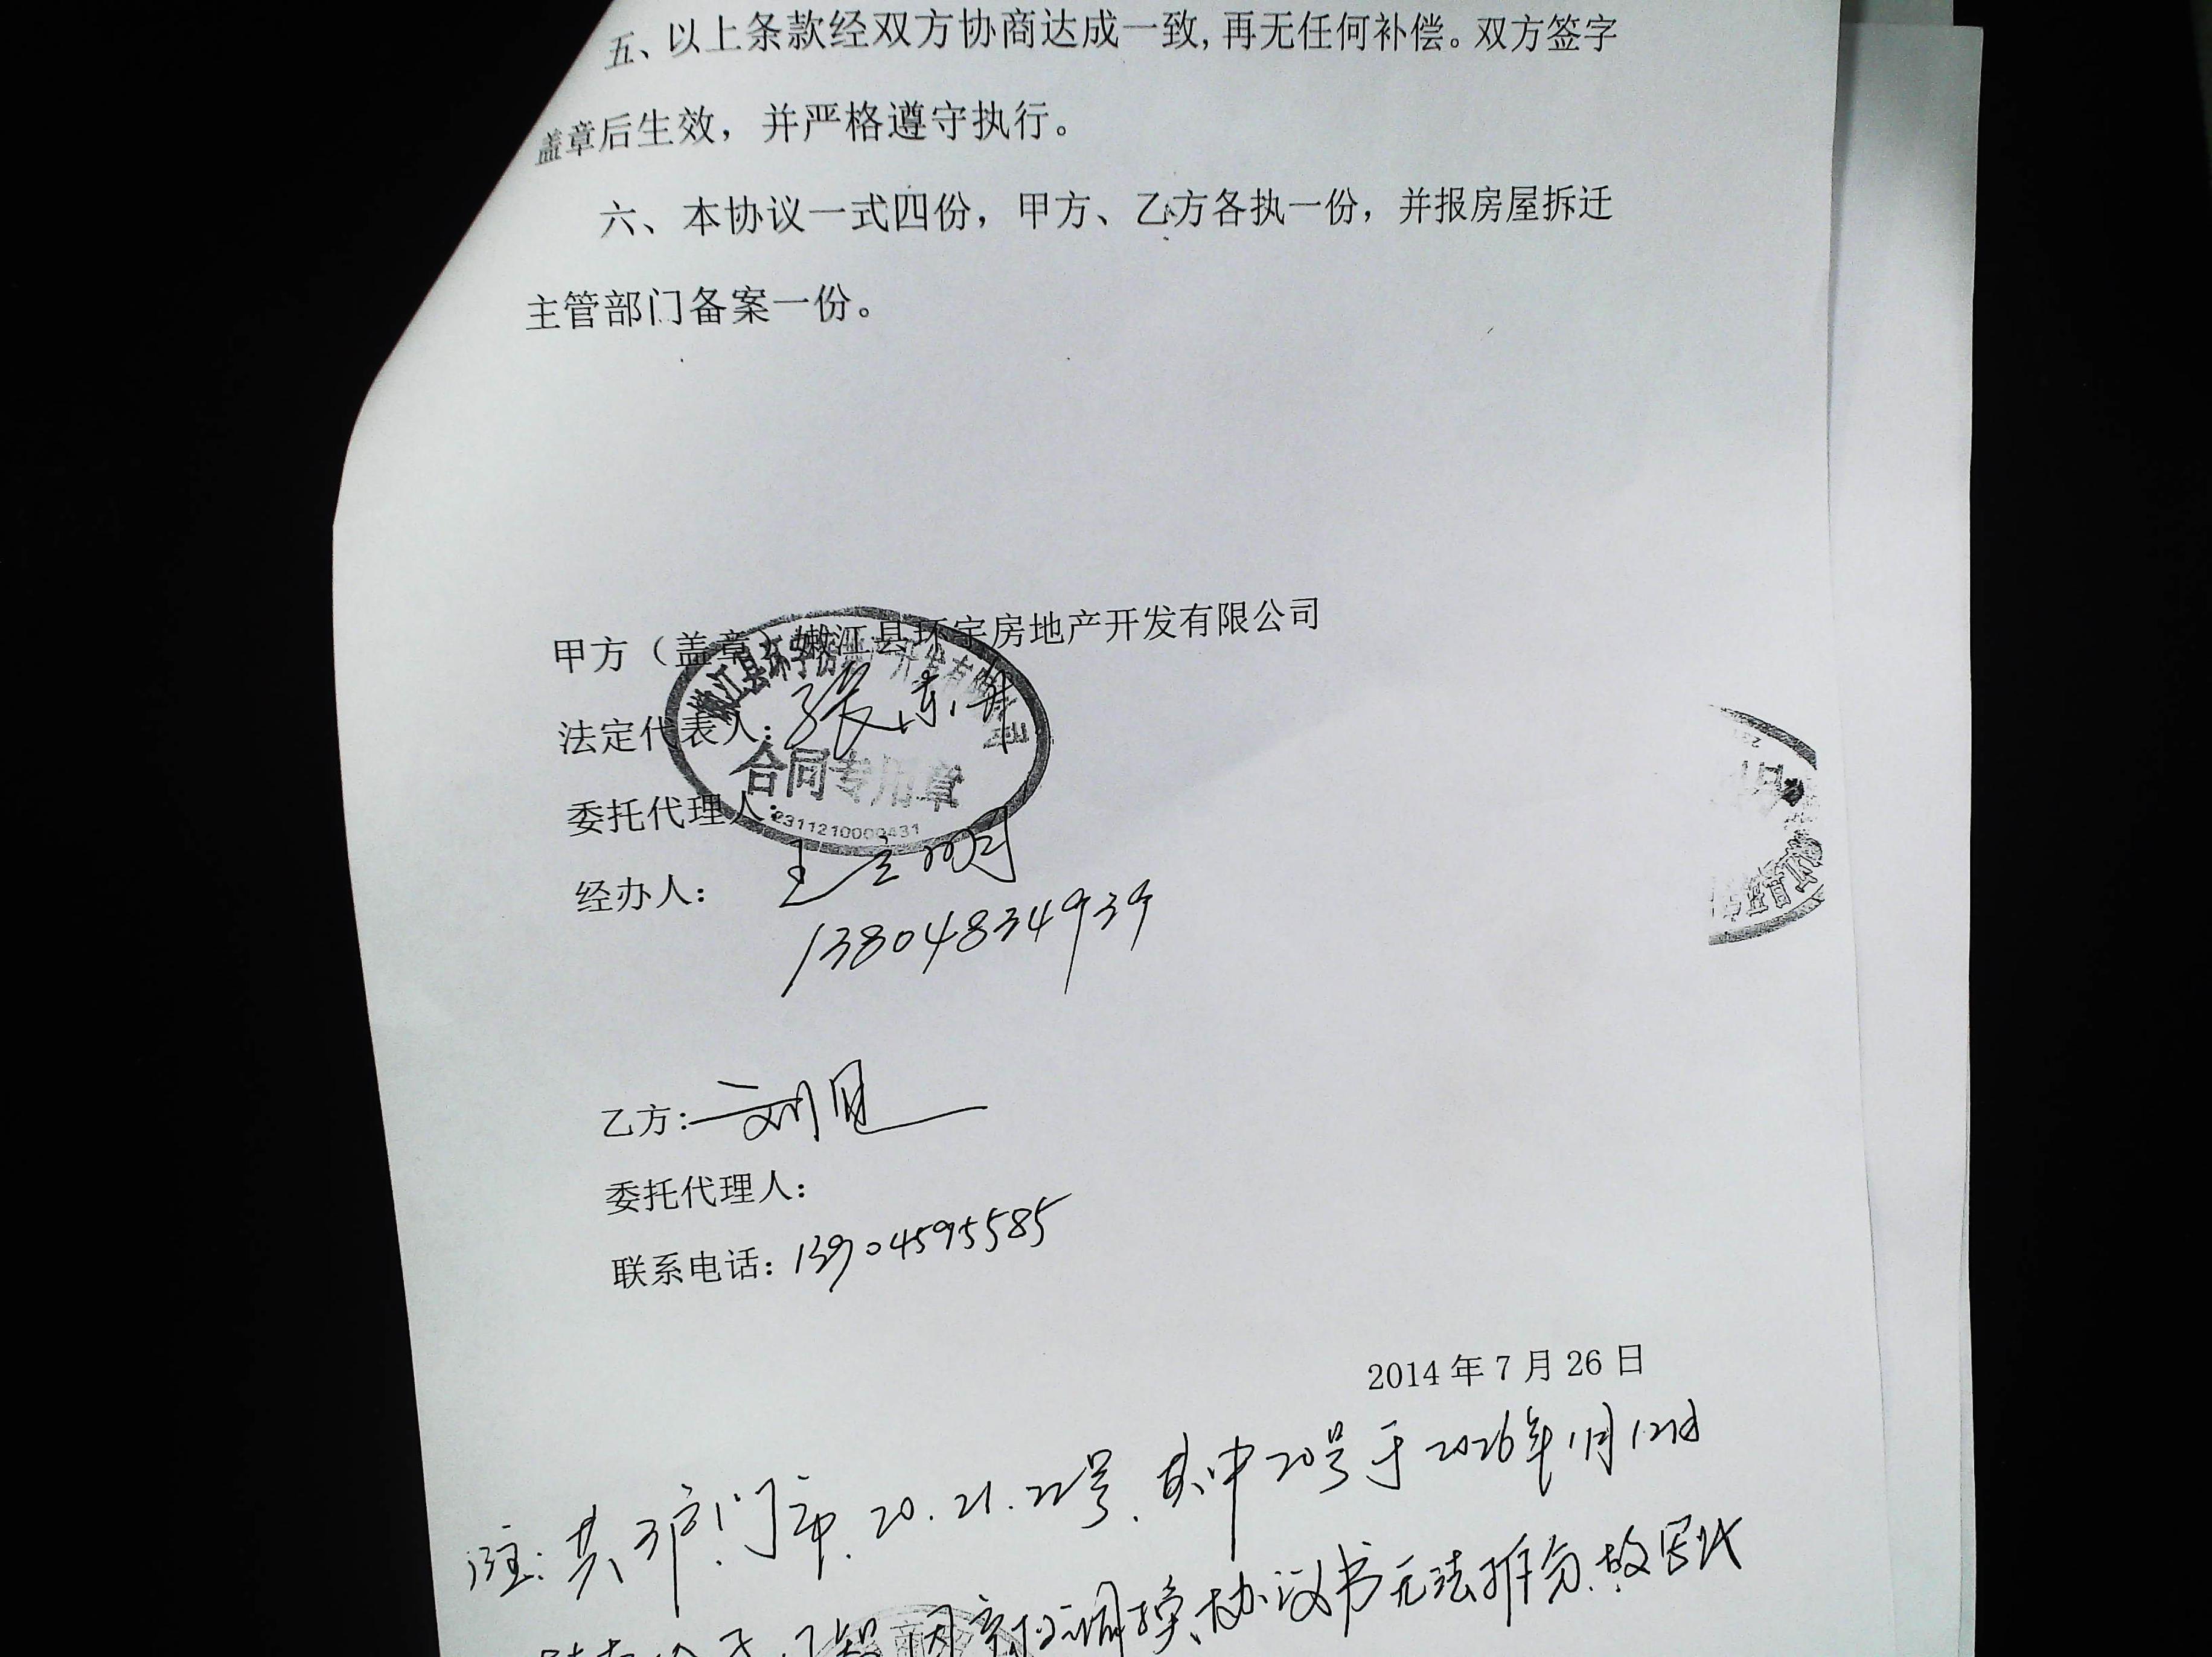 五、以上条款经双方协商达成一致,再无任何补偿。双方签字
盖章后生效，并严格遵守执行。
六、本协议一式四份，甲方、乙方各执一份，并报房屋拆迁
主管部门备案一份。
甲方（盖章）嫩江县环宇房地产开发有限公司
嫩江县环宇房地产开发有限公司
法定代表人：张
合同专用章
委托代理人：
2311210000431
经办人：王立明
13804834939
乙方：刘
委托代理人：
联系电话：13904595585
2014年7月26日
注：共3户门市，20.21.22号，其中20号于2026年1月12日
因产权调换协议书无法拆分，故写此